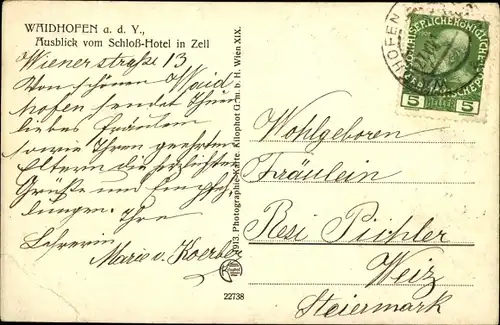 WAIDHOFEN a. d. Y.,
Ausblick vom Schloß-Hotel in Zell
Wienerstraße 13
Vom schönen Waid
hofen sendet Ihnen
liebes Fräulein
sowie Ihren geehrten
Eltern die herzlichsten
Grüße und Empfeh
lungen. Ihre
Lehrerin
Marie v. Koerber
1913 Photographie-Karte Kilophot G. m. b. H. Wien XIX.
22738
HOFEN
KAISERLICHE KÖNIGLICHE
5 HELLER 5
Wohlgeboren
Fräulein
Resi Pichler
Weiz
Steiermark